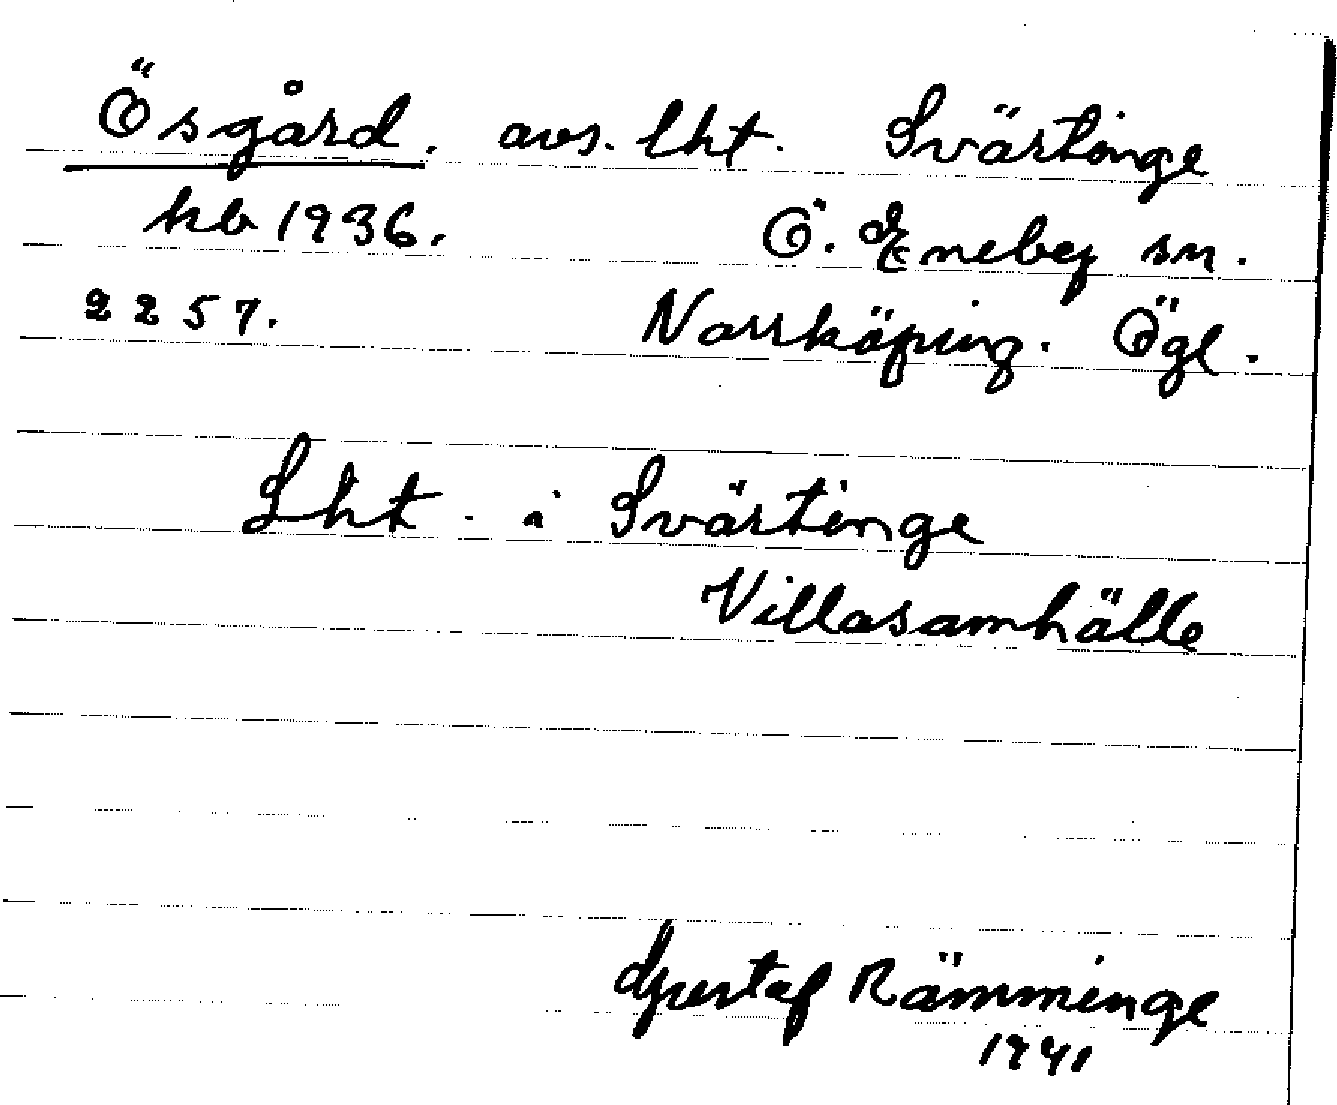 Ösgård. avs. lht. Svärtinge
kb 1936. Ö. Eneby sn.
2257. Norrköping. Ögl.
Lht. i Svärtinge
Villasamhälle
Gustaf Rämminge
1941